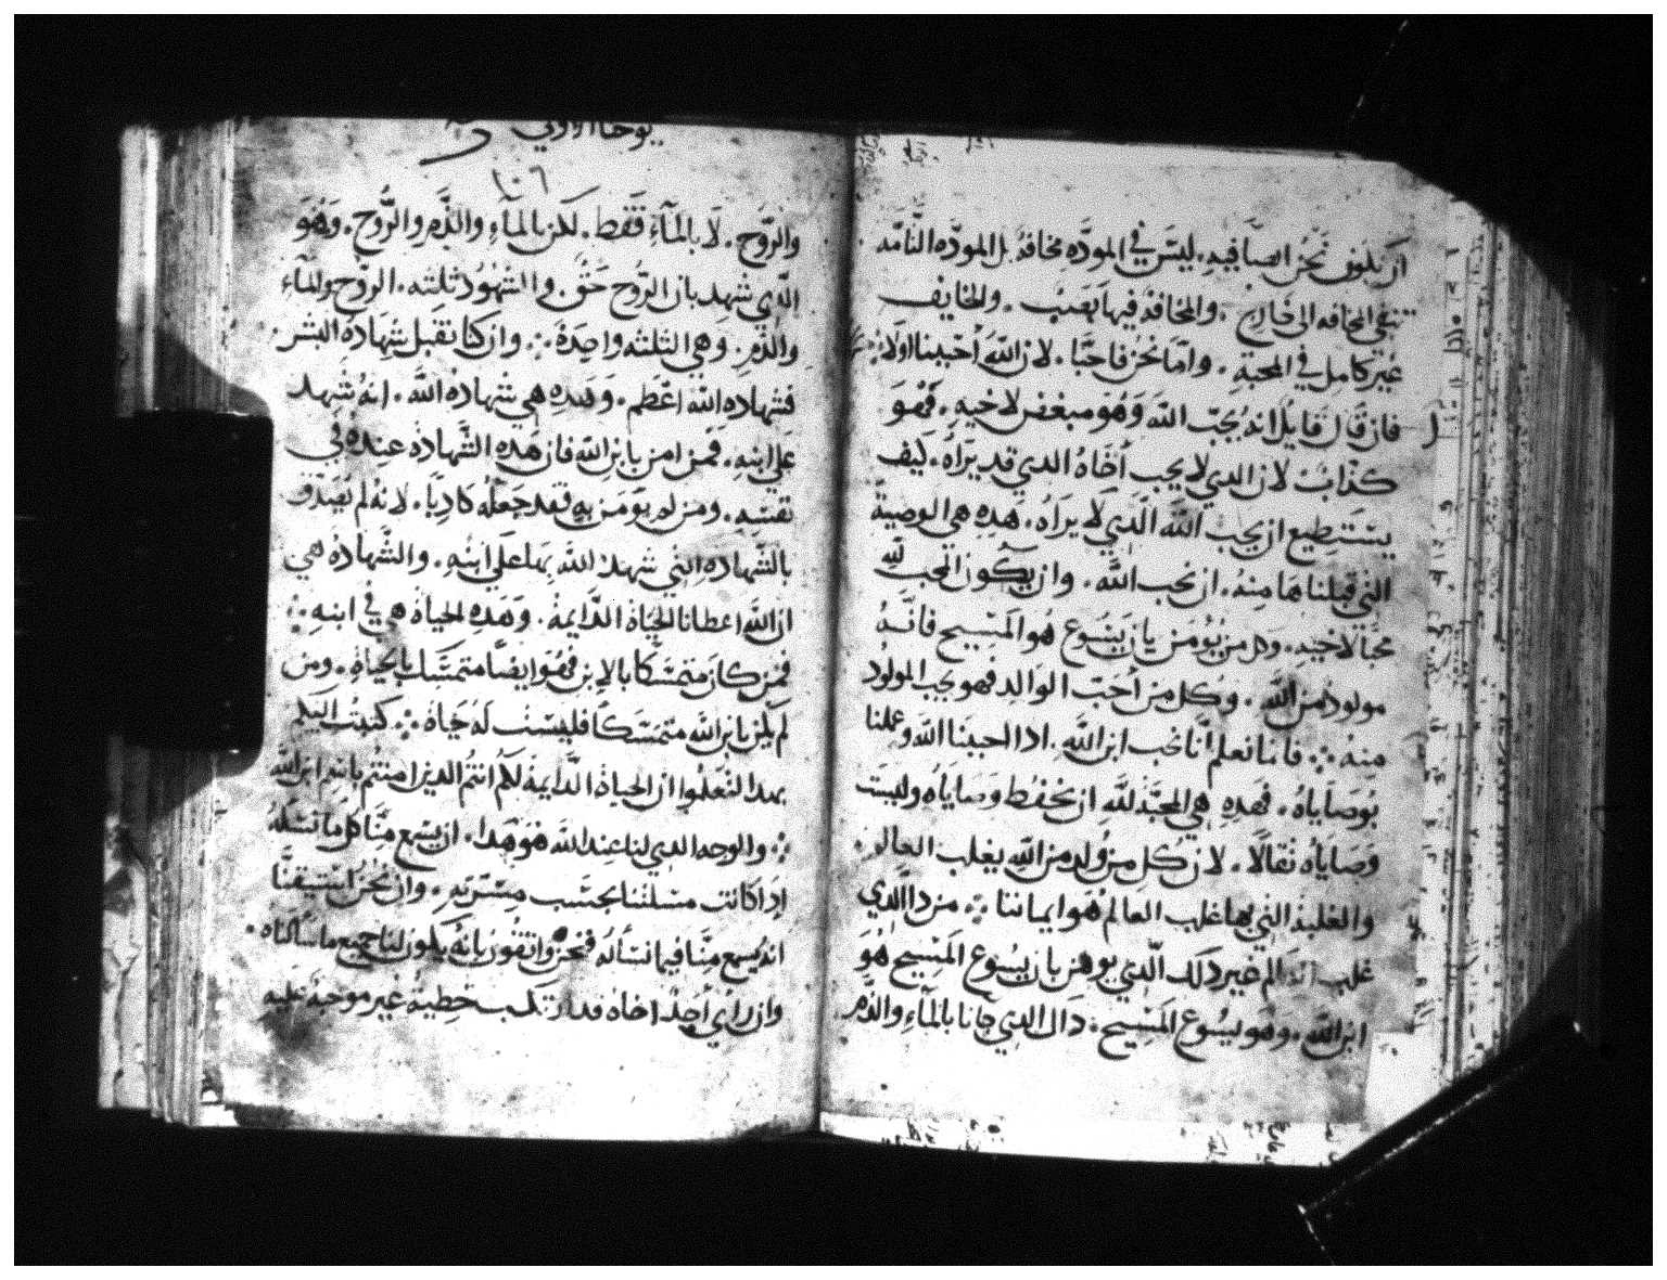 ان نكون نحن ايضا فيه. ليس في المودّه مخافة بل المودّه التامّه
تنفي المخافه الى خارج. والمخافة فيها تعب. والخايف
غير كامل في المحبة. وامّا نحن فاحبّا. لان اللّه احبّنا اولا
فان قال قايل انه يُحبّ اللّه وهُوَ مبغض لاخيهِ. فهُوَ
كذاب لان الدي لا يحب أخَاهُ الدي قد يرَاهُ. كيف
يسْتَطِيع ان يحب اللّه الّدي لا يرَاه. هَدِهِ هي الوصية
التي قبلنا هَا منهُ. ان نحب اللّه. وان يكون المحب للّه
محبًّا لاخيهِ. وكل من يُؤمَن بان يَسُوع هُو المَسِيح فانّهُ
مولودٌ من اللّه. وكل من أحَبّ الوالد فهو يحب المولود
منهُ ჻ فامّا نعلم انّا نحب ابن اللّه. ادا احببنا اللّه وعملنا
بوصَاياهُ. فهَدِهِ هي المحبّة للّه ان نحفط وصَايَاه وليسَت
وَصَاياه ثقالًا. لان كُل من وُلد من اللّه يغلب العالم.
والغلبة التي بها غلب العالم هُوَ ايماننا ჻ من دا الّدي
غلب العالم غير دلك الّدي يومن بان يسُوع المَسِيح هُوَ
ابن اللّه. وهو يسُوع المَسِيح. داك الدي جانا بالمآءِ والدّم
يوحنا الاولي
١٠٦
والرّوَح. لَا بالمآءِ فَقَط. لكن بالمآءِ والدَّم والرُّوح. وَهُوَ
الدّي شهِد بان الرّوُح حَقٌ. والشهُوُد ثلثه. الروح والمآءِ
والدّم. وَهي الثلثه واحِدَة ჻ وان كنا نقبل شهَادة البشر
فشهاده اللّه اعْظم. وَهَدِهِ هي شهادة اللّه. انهُ شهِد
على ابنهِ. فمن امن بابن اللّه فان هَدهِ الشّهادة عنِده في
نفسَهِ. ومن لم يؤمَن بهِ فقد جَعَلُه كَادِبًا. لانهُ لم يُصَدّق
بالشّهاده التي شهد اللّه بهَا عَلي ابنهِ. والشّهادة هي
ان اللّه اعطانا الحَيَاة الدّايمة. وَهَدِهِ الحياة هي في ابنهِ ჻
فمن كانَ متمسّكًا بالابن فهُوَ ايضًا متمسّك بالحياةِ. ومن
لم يكن بابن اللّه متمسّكًا فليسَت لهُ حَيَاة ჻ كتبتُ اليكم
بهدا لتعلمُوا ان الحياة الدّايمة لكم انتُم الدين امنتُم باسم ابن اللّه
჻ والوجه الدي لنا عند اللّه هُوَ هَدا. ان يسَمع منَّا كل مَا نسَئلهُ
إدَا كانت مسَلتنا بحسَب مسَرّتهِ. وان نحن استيقنَّا
انهُ يسمع منَّا فيما نسَألهُ فنحن واثقُون بانهُ يكون لنا جميع ما سَألناه.
وان راي أحدٌ اخَاهُ قد ارتكب خطيةً غير موجبة عليهِ